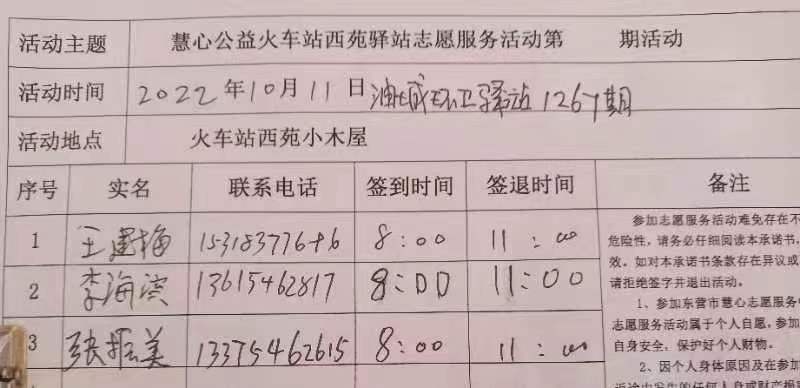 活动主题 慧心公益火车站西苑驿站志愿服务活动第 期活动
活动时间 2022年10月11日油城环卫驿站126期
活动地点 火车站西苑小木屋
序号 实名 联系电话 签到时间 签退时间 备注
1 王建梅 8:00 11:00
2 李海滨 13615462817 8:00 11:00
3 张振美 13375462615 8:00 11:00
参加志愿服务活动难免存在不
危险性，请务必仔细阅读本承诺书，
效。如对本承诺书条款存在异议或
请拒绝签字并退出活动。
1、参加东营市慧心志愿服务
志愿服务活动属于个人自愿，参加
自身安全，保护好个人财物。
2、因个人身体原因及在参加
返途中发生的任何人身或财产损